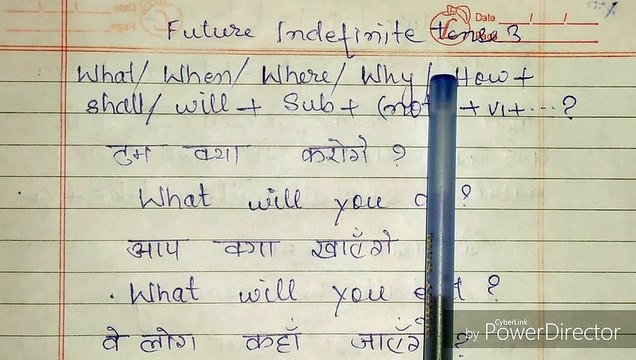 Date
Future Indefinite tense 3
What/ When/ Where/ Why/ How +
shall/ will + Sub + (not + V1 + ...?
तुम क्या करोगे ?
What will you ?
आप क्या खाएँगे
. What will you ?
वे लोग कहाँ जाएँगे ?
CyberLink
by PowerDirector